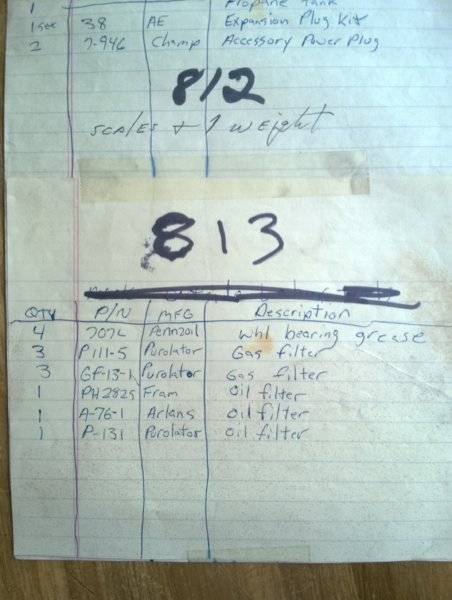 1 Propane Tank
1 set 38 AE Expansion Plug Kit
2 7-946 Champ Accessory Power Plug
812
SCALES + 1 weight
813
QTY P/N MFG Description
4 707L Pennzoil Whl bearing grease
3 P111-5 Purolator Gas filter
3 GF-13-1 Purolator Gas filter
1 PH2825 Fram Oil filter
1 A-76-1 Arkans Oil filter
1 P-131 Purolator Oil filter